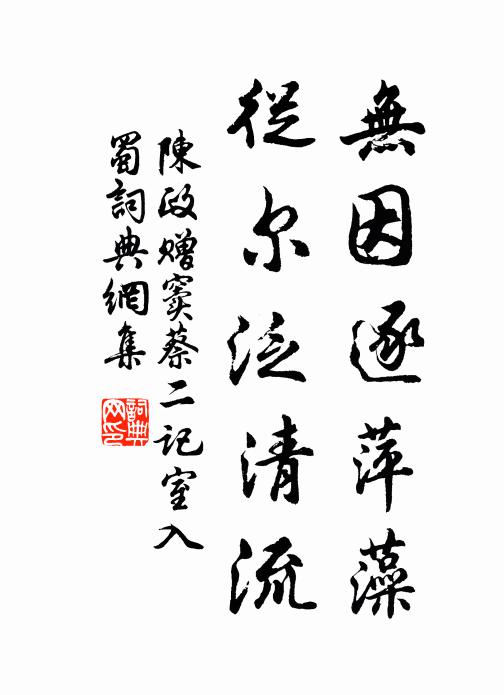 無因逐萍藻
從尔泛清流
陳政贈竇蔡二記室入
蜀詞典網集
詞典
网印